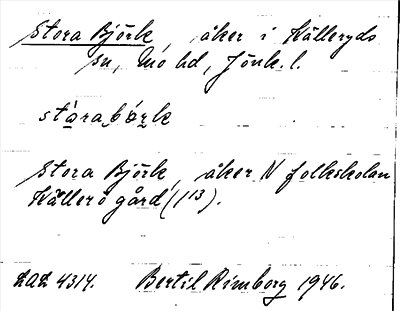 Stora Björk, åker i Källeryds
sn, Mo hd, Jönk. l.
stòrabö́rk
Stora Björk, åker N folkskolan
Källerö gård (1¹³).
4314. Bertil Rimborg 1946.